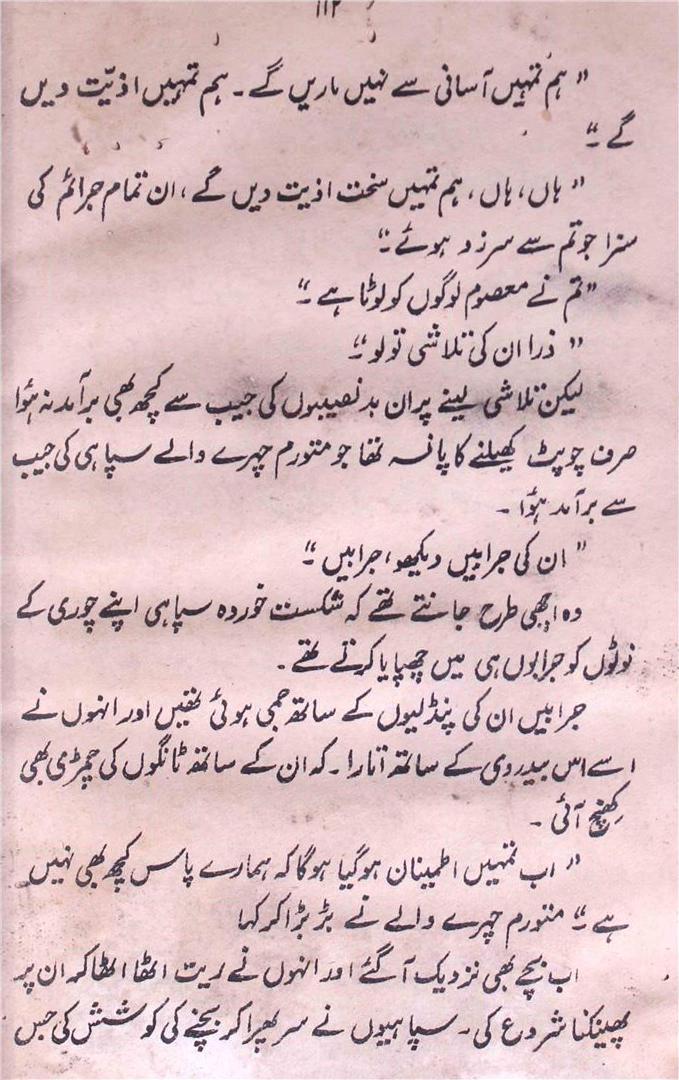 ۱۱۲
" ہم تمہیں آسانی سے نہیں ماریں گے ۔ ہم تمہیں اذیّت دیں
گے ۔"
" ہاں، ہاں، ہم تمہیں سخت اذیت دیں گے، ان تمام جرائم کی
سزا جو تم سے سرزد ہوئے ۔"
" تم نے معصوم لوگوں کو لوٹا ہے ۔"
" ذرا ان کی تلاشی تو لو ۔"
لیکن تلاشی لینے پر ان بدنصیبوں کی جیب سے کچھ بھی برآمد نہ ہؤا
صرف چوپٹ کھیلنے کا پانسہ تھا جو متورم چہرے والے سپاہی کی جیب
سے برآمد ہؤا ۔
" ان کی جرابیں دیکھو، جرابیں ۔"
وہ اچھی طرح جانتے تھے کہ شکست خوردہ سپاہی اپنے چوری کے
نوٹوں کو جرابوں ہی میں چھپایا کرتے تھے ۔
جرابیں ان کی پنڈلیوں کے ساتھ جمی ہوئی تھیں اور انہوں نے
اسے اس بیدردی کے ساتھ اتارا ۔ کہ ان کے ساتھ ٹانگوں کی چمڑی بھی
کھِنچ آئی ۔
" اب تمہیں اطمینان ہو گیا ہوگا کہ ہمارے پاس کچھ بھی نہیں
ہے ۔" متورم چہرے والے نے بڑبڑا کر کہا
اب بچے بھی نزدیک آ گئے اور انہوں نے ریت اٹھا اٹھا کر ان پر
پھینکنا شروع کی ۔ سپاہیوں نے سر پھرا کر بچنے کی کوشش کی جس